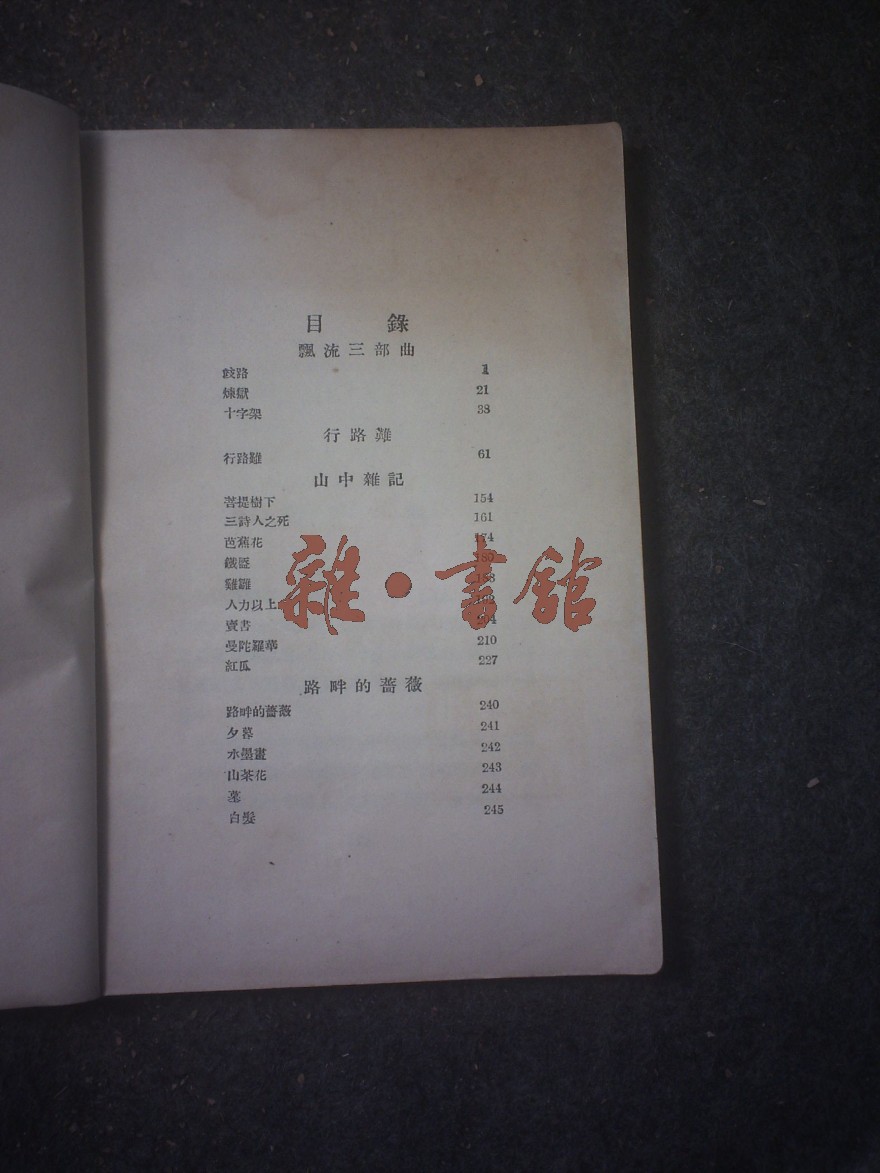 目錄
飄流三部曲
歧路 1
煉獄 21
十字架 38
行路難
行路難 61
山中雜記
菩提樹下 154
三詩人之死 161
芭蕉花 174
鐵盔
雞雛 188
人力以上
賣書 204
曼陀羅華 210
紅瓜 227
路畔的薔薇
路畔的薔薇 240
夕暮 241
水墨畫 242
山茶花 243
墓 244
白髮 245
雜·書館